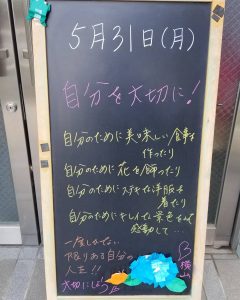 5月31日(月)
自分を大切に!
自分のために美味しい食事を
作ったり
自分のために花を飾ったり
自分のためにステキな洋服を
着たり
自分のためにキレイな景色を見て
感動して…
一度しかない
限りある自分の
人生!!
大切にしよう
横山